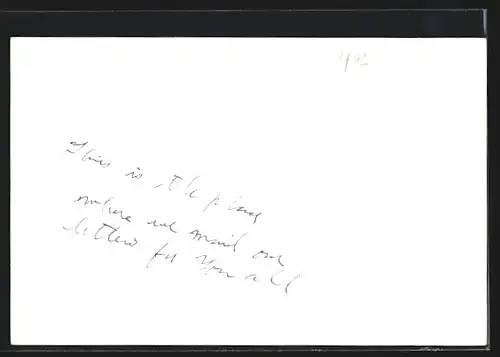 This is the place
where we mail our
letters for you all